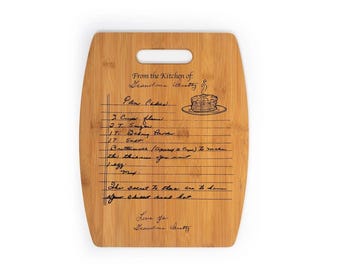 From the Kitchen of:
Grandma Beatty
Flour Cakes
2 Cups flour
2 T. Sugar
1 T. Baking Powder
1 T. Salt
Buttermilk to make
the thickness you want
1 egg
Mix.
The secret to these are to have
your skeet real hot
Love ya
Grandma Beatty